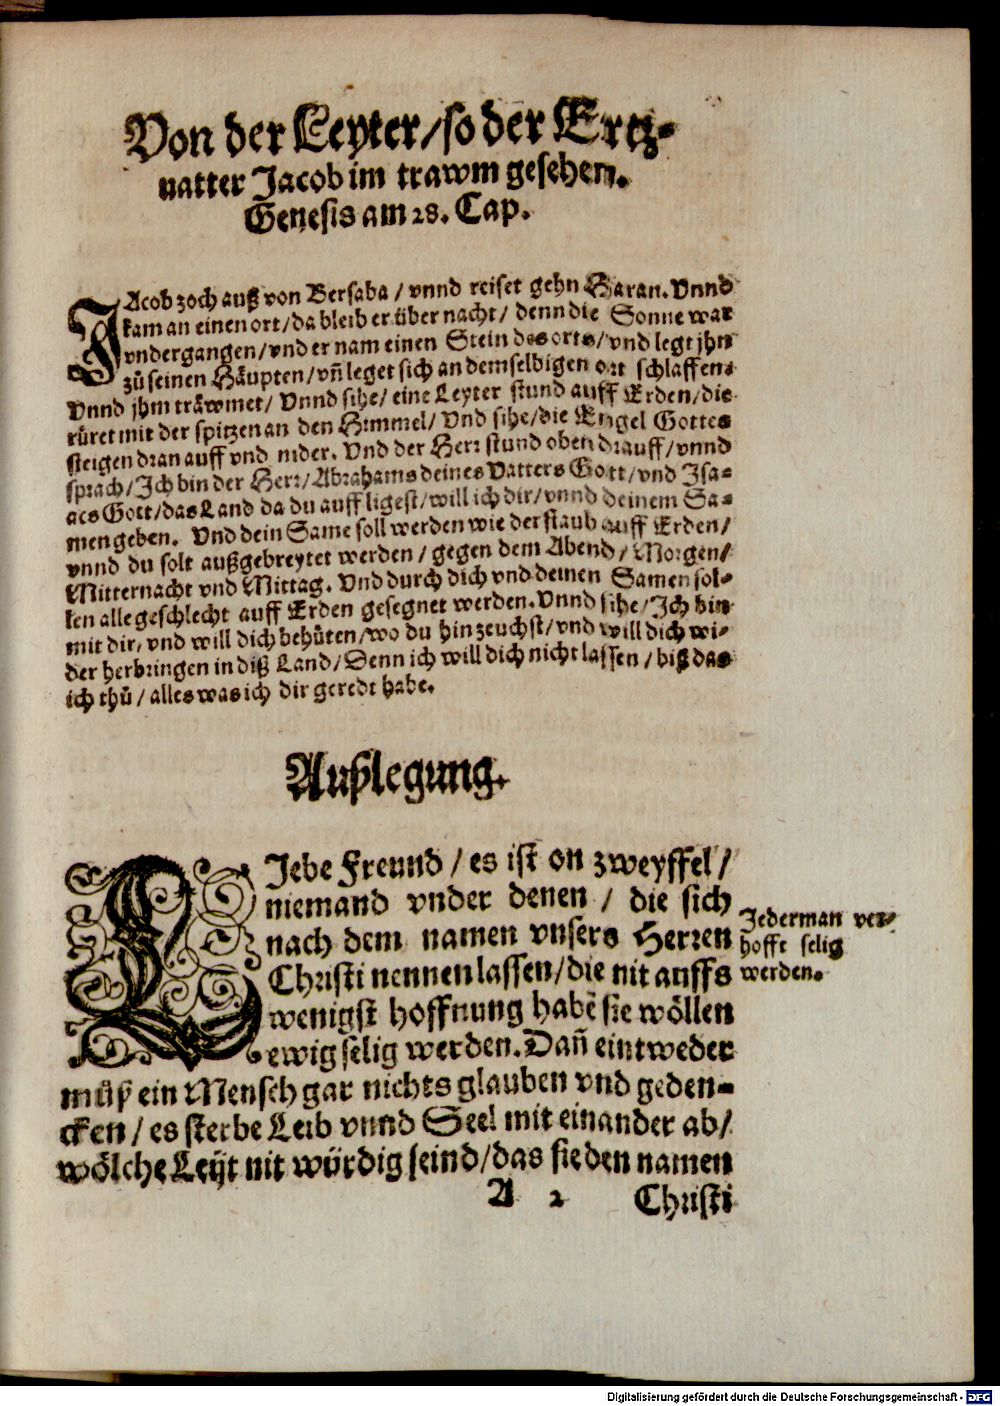 Von der Leyter/so der Ertz-
uatter Jacob im trawm gesehen.
Genesis am 28. Cap.
JAcob zoch auß von Bersaba / vnnd reiset gehn Haran. Vnnd
kam an einen ort/da bleib er über nacht / denn die Sonne war
vndergangen/vnd er nam einen Stein des orts/vnd legt jhn
zů seinen Häupten/vñ leget sich an demselbigen ort schlaffen.
Vnnd jhm träwmet/ Vnnd sihe/ eine Leyter stund auff Erden/die
rüret mit der spitzen an den Himmel/ Vnd sihe/die Engel Gottes
steigen dran auff vnd nider. Vnd der Herr stund oben drauff/vnnd
sprach/Ich bin der Herr/Abrahams deines Vatters Gott/vnd Isa-
acs Gott/das Land da du auff ligest/will ich dir/vnnd deinem Sa-
men geben. Vnd dein Same soll werden wie der staub auff Erden/
vnnd du solt außgebreytet werden / gegen dem Abend / Morgen/
Mitternacht vnd Mittag. Vnd durch dich vnd deinen Samen sol-
len alle geschlecht auff Erden gesegnet werden. Vnnd sihe/Ich bin
mit dir, vnd will dich behüten/wo du hin zeuchst/vnd will dich wi-
der herbringen in diß Land/Denn ich will dich nicht lassen / biß das
ich thů / alles was ich dir geredt habe.
Außlegung.
LJebe Freund / es ist on zweyffel /
niemand vnder denen / die sich
nach dem namen vnsers Herren
Christi nennen lassen/die nit auffs
wenigst hoffnung habẽ sie wöllen
ewig selig werden. Dañ eintweder
můß ein Mensch gar nichts glauben vnd geden-
cken / es sterbe Leib vnnd Seel mit einander ab/
wölche Leüt nit würdig seind/das sie den namen
A 2 Christi
Jederman ver-
hofft selig
werden.
Digitalisierung gefördert durch die Deutsche Forschungsgemeinschaft - DFG